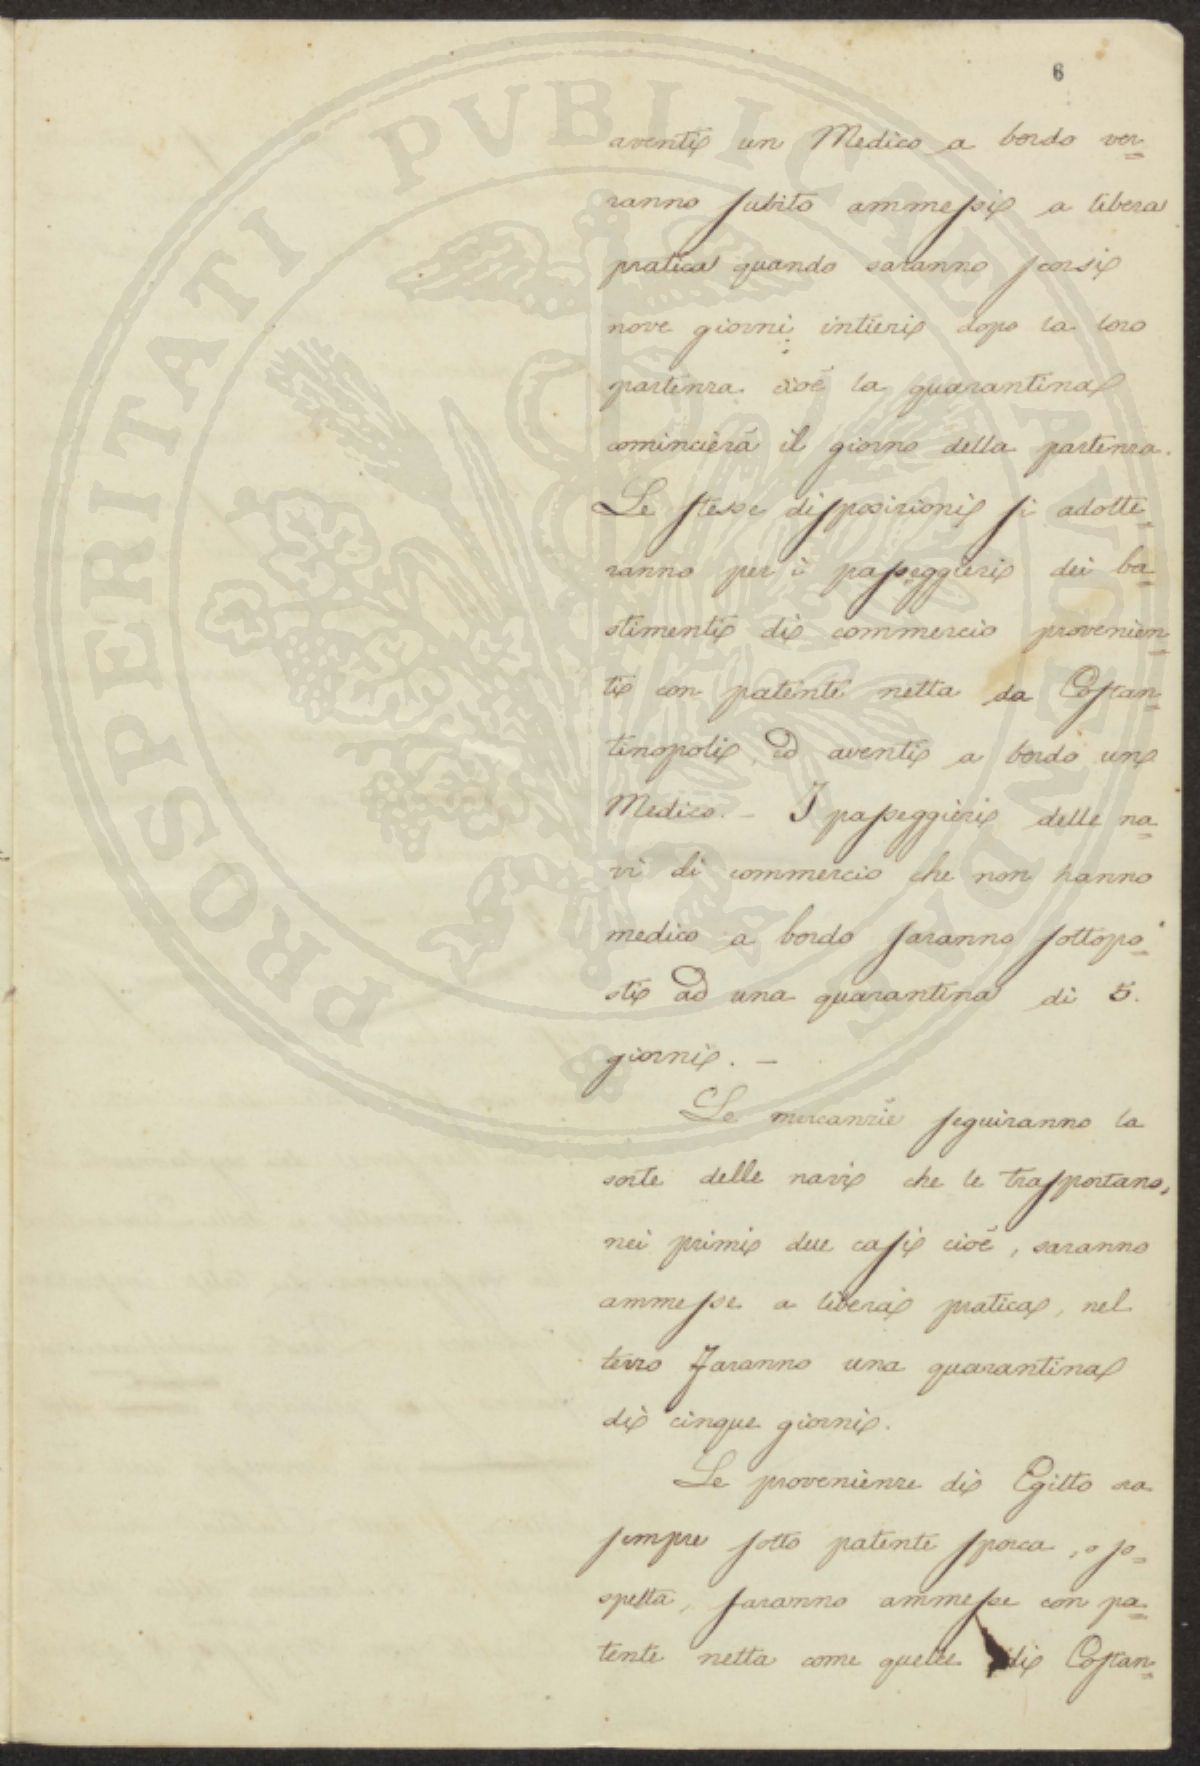 6
aventi un Medico a bordo ver=
ranno subito ammessi a libera
pratica quando saranno scorsi
nove giorni intieri dopo la loro
partenza. cioè la quarantina
comincierà il giorno della partenza.
Le stesse disposizioni si adotte=
ranno per i passeggieri dei ba=
stimenti di commercio provenien=
ti con patente netta da Costan=
tinopoli, ed aventi a bordo un
Medico. – I passeggieri delle na=
vi di commercio che non hanno
medico a bordo saranno sottopo=
sti ad una quarantina di 5.
giorni. –
Le mercanzie seguiranno la
sorte delle navi che le trasportano,
nei primi due casi cioè, saranno
ammesse a libera pratica, nel
terzo faranno una quarantina
di cinque giorni.
Le provenienze di Egitto ora
sempre sotto patente sporca, o so=
spetta, saranno ammesse con pa=
tente netta come quelle di Costan=
PROSPERITATI PVBLICAE AVGENDAE